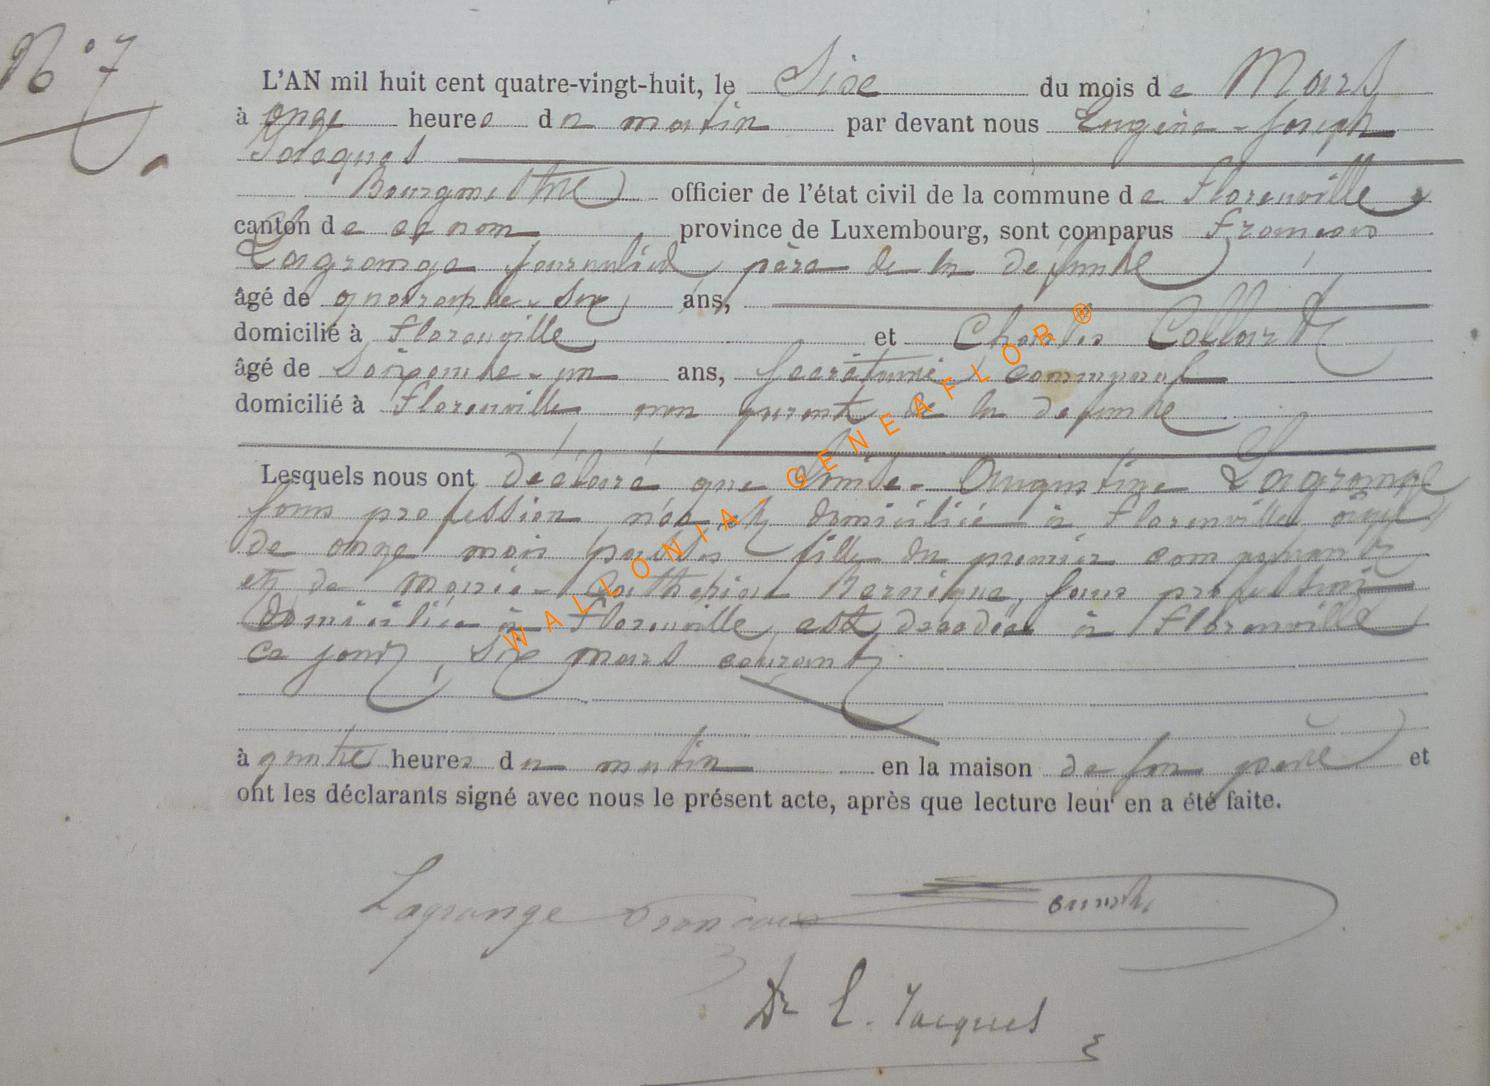 N° 7
L'AN mil huit cent quatre-vingt-huit, le Six du mois de Mars
à onze heures du matin par devant nous Eugène-Joseph
Jacques
Bourgmestre officier de l'état civil de la commune de Florenville
canton de ce nom province de Luxembourg, sont comparus François
Lagrange journalier père de la défunte
âgé de quarante-six ans,
domicilié à Florenville et Charles Collard
âgé de Soixante-un ans, Secrétaire communal
domicilié à Florenville non parent de la défunte
Lesquels nous ont déclaré que Augustine Lagrange
sans profession née et domiciliée à Florenville âgée
de onze mois fille du premier comparant
et de Marie-Catherine Bernique, sans profession
domiciliée à Florenville, est décédée à Florenville
ce jourd. six mars courant
à quatre heures du matin en la maison de son père et
ont les déclarants signé avec nous le présent acte, après que lecture leur en a été faite.
Lagrange Francois
Dr E. Jacques
WALLONIA-GENEAFLOR ®